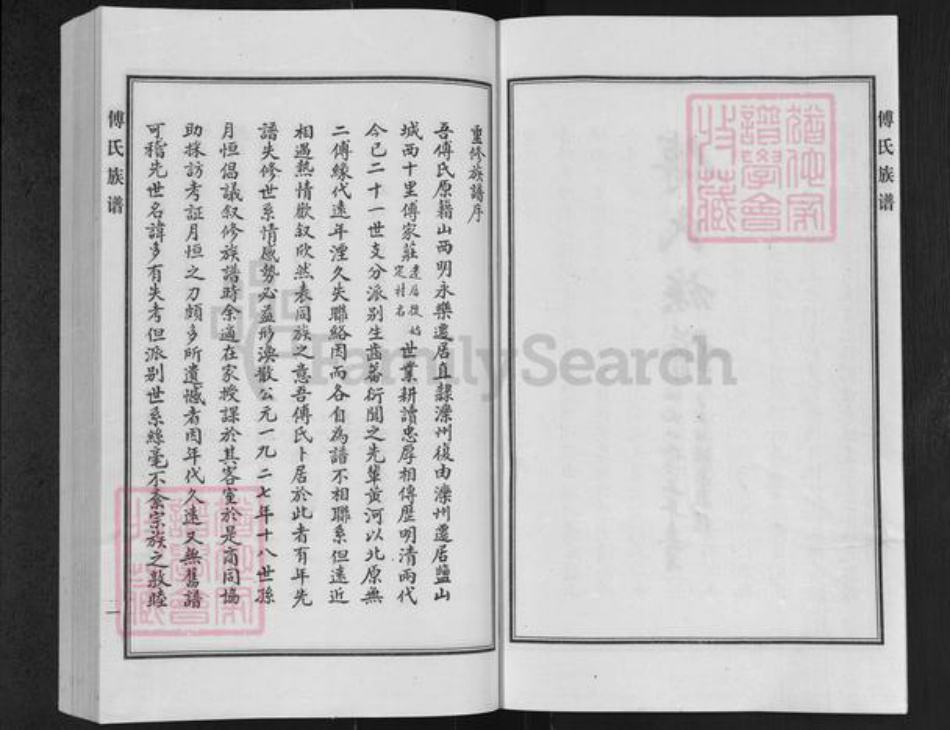 傅氏族谱
猶他家譜學會收藏
重修族譜序
吾傅氏原籍山西明永樂遷居直隸灤州後由灤州遷居鹽山
城西十里傅家莊遷居後始定村名世業耕讀忠厚相傳歷明清兩代
今已二十一世支分派别生齒蕃衍聞之先輩黄河以北原無
二傅緣代遠年湮久失聯絡因而各自為譜不相聯系但遠近
相遇熱情歡叙欣然表同族之意吾傅氏卜居於此者有年先
譜失修世系情感勢必益形渙散公元一九二七年十八世孫
月恒倡議叙修族譜時余適在家授課於其客室於是商同協
助採訪考証月恒之力頗多所遺憾者因年代久遠又無舊譜
可稽先世名諱多有失考但派别世系絲毫不紊宗族之敦睦
傅氏族谱
一
猶他家譜學會收藏
FamilySearch